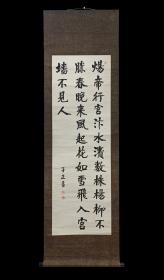 煬帝行宮汴水濱數株楊柳不
勝春晚來風起花如雪飛入宮
墻不見人